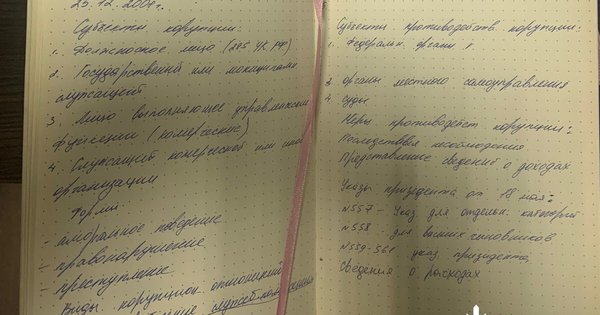 25.12.2007г.
Субъекты корупции:
1. Должносное лицо (285 УК РФ)
2. Государственный или
служащий
3. Лицо выполняющее управленческ
функции (комерческие)
4. Служащий комерческой или иной
организации
Формы:
- аморальное поведение
- правонарушение
- преступление
Виды корупцион.
Субъекты противодейств. корупции:
1. Федеральн. органы
3 органы местного самоуправления
4 суды
Меры противодейст корупции:
Последствия несоблюдения
Представление сведений о доходах
Указы президента от 18 мая:
N557 - Указ для отдельн. категорий
N558 - для чиновников
N559-561 указ президента,
Сведения о расходах